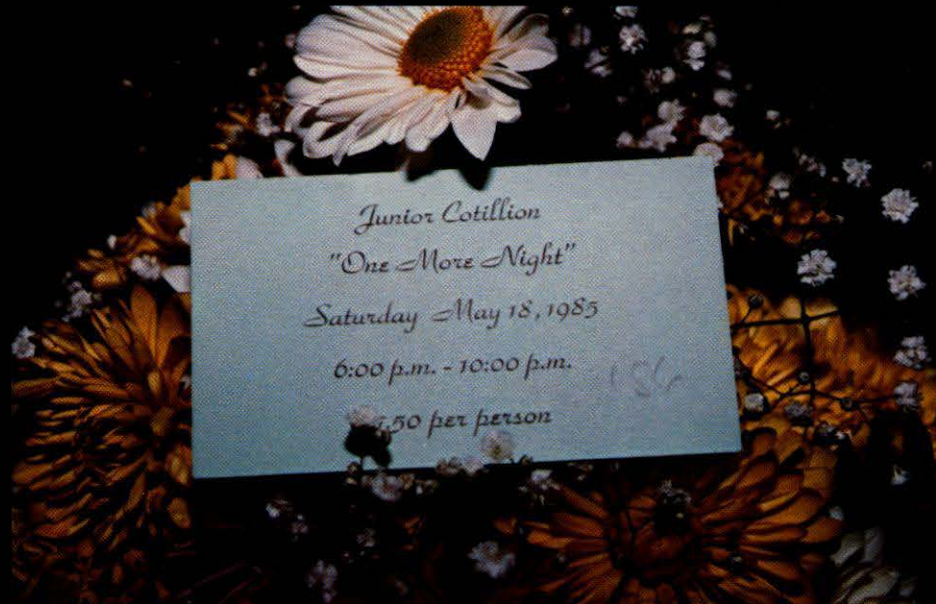 Junior Cotillion
"One More Night"
Saturday May 18, 1985
6:00 p.m. - 10:00 p.m.
per person